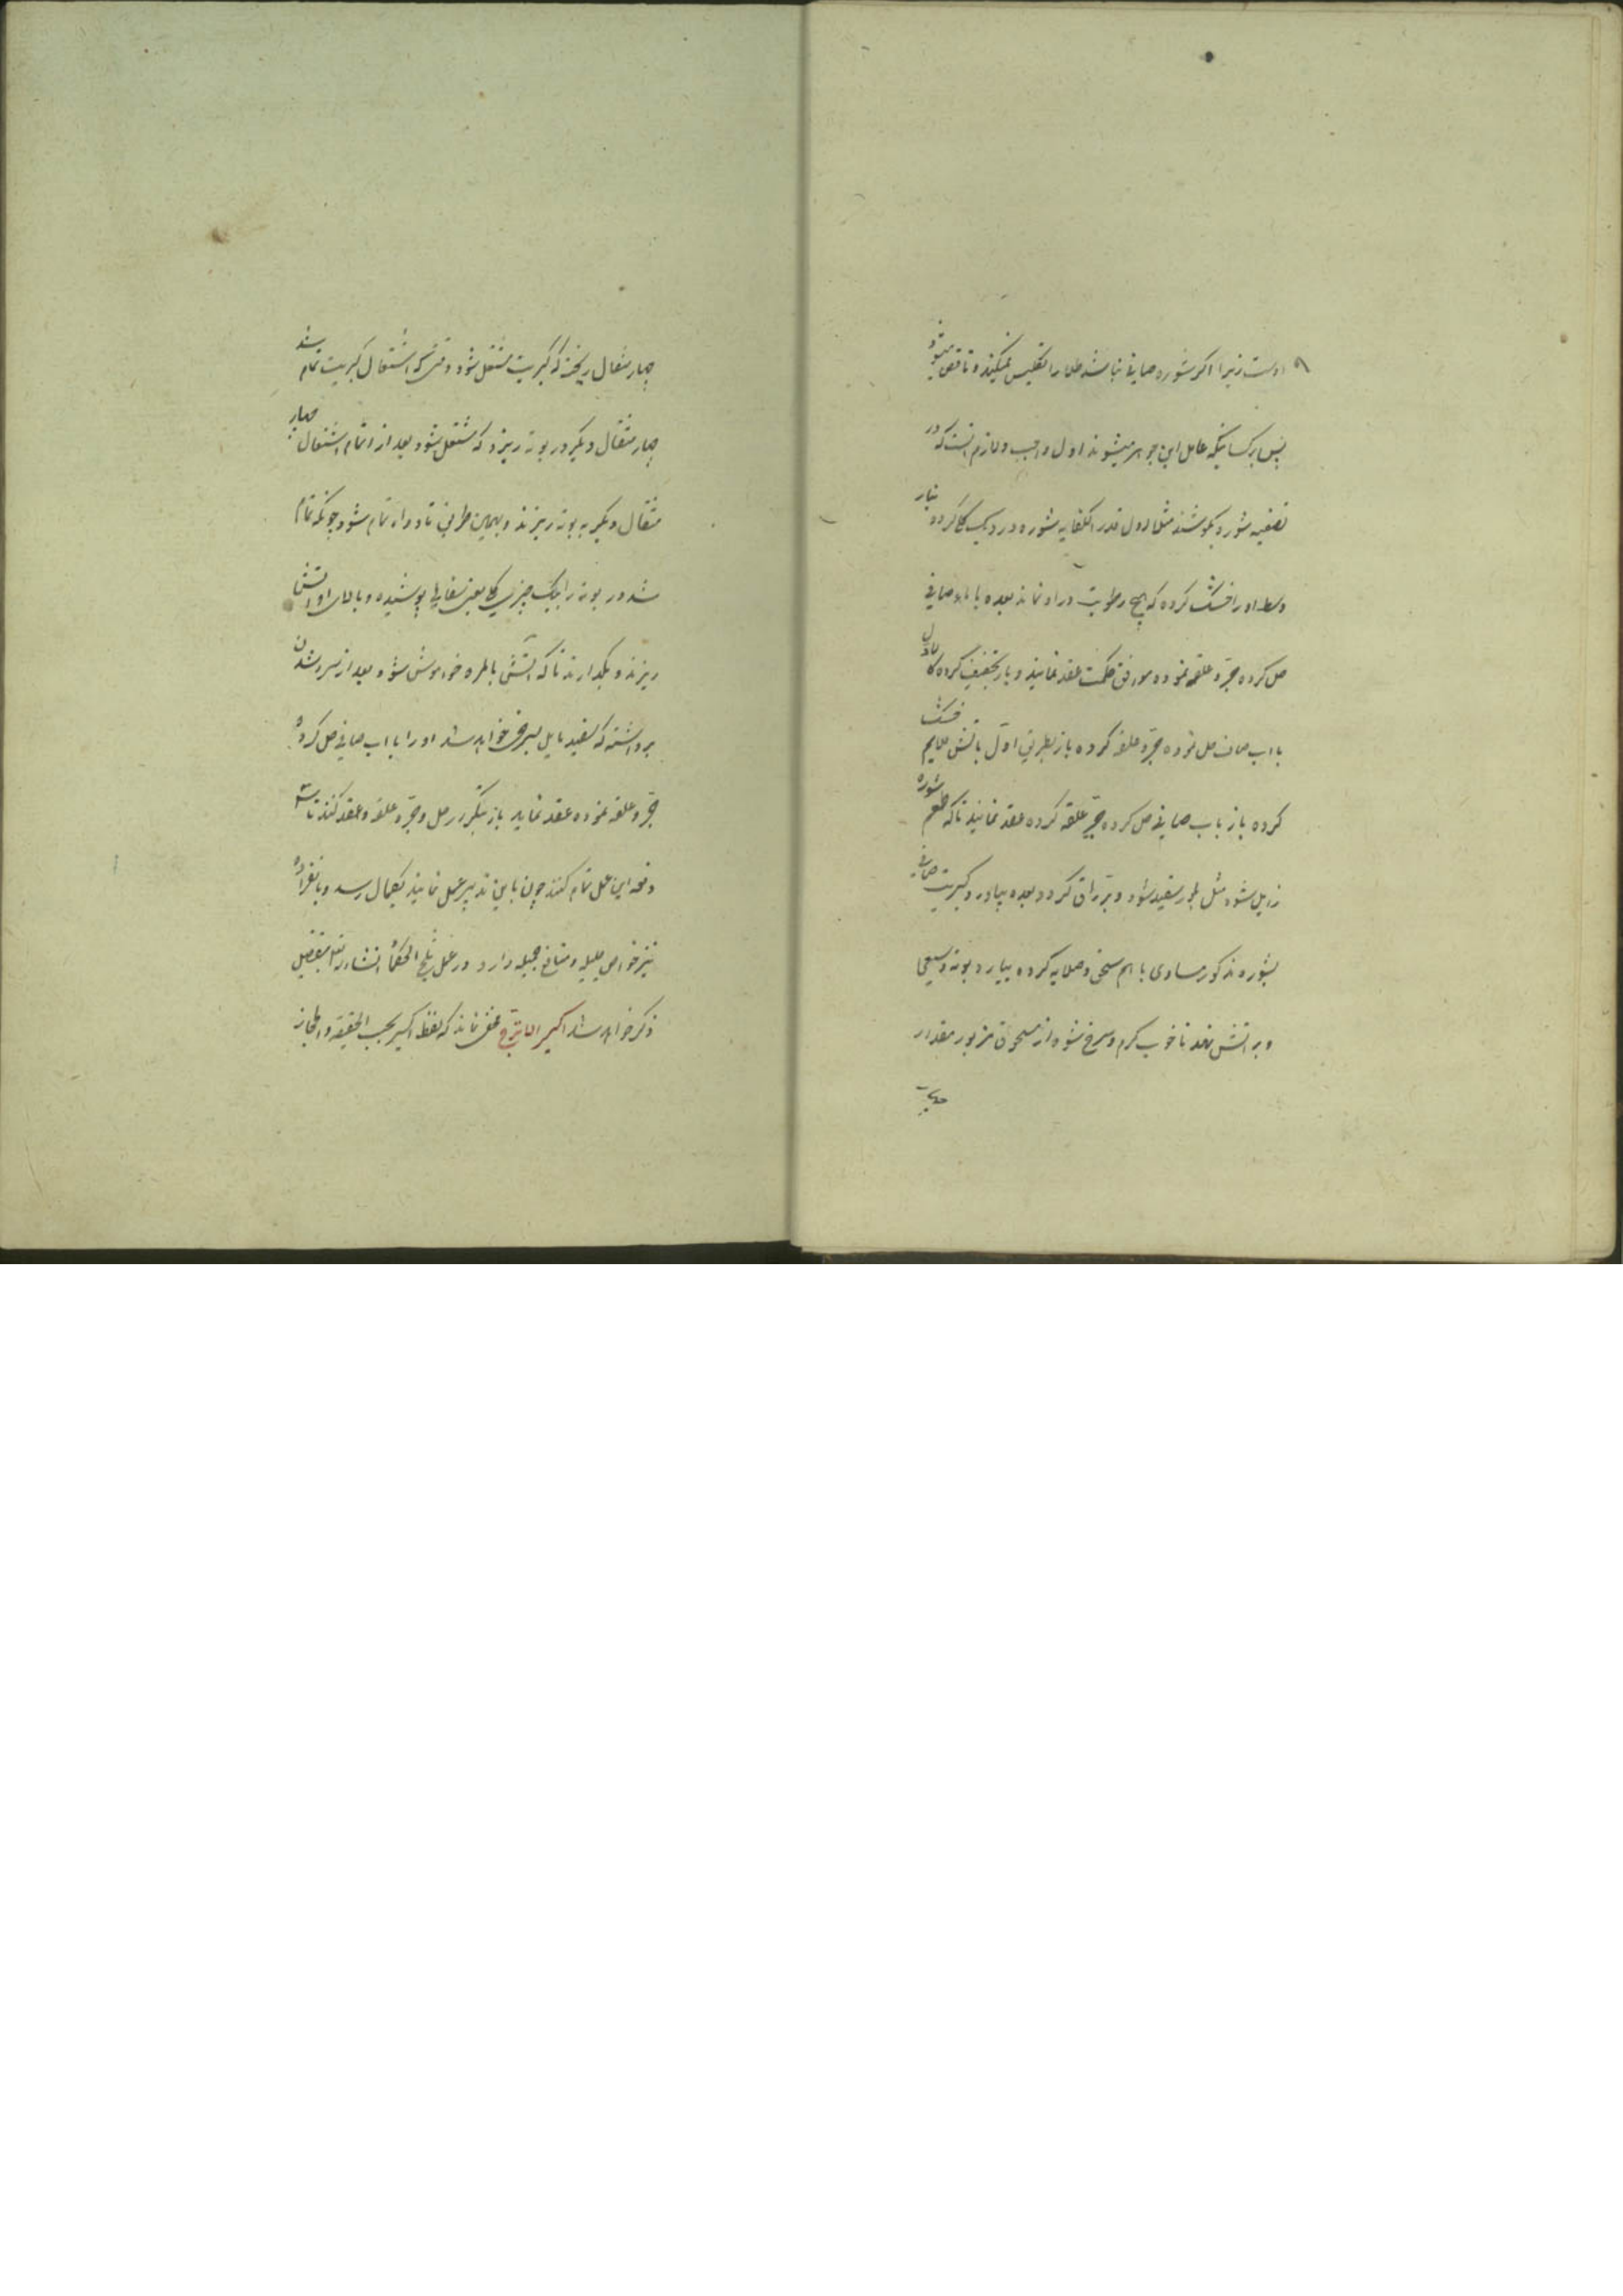 اوست زیرا اکر شوره صافی نباشد طلا را تکلیس نمیکند و ناقص میشود
پس هر کسانیکه عامل این جوهر میشوند اول واجب و لازم انست که در
تصفیه شوره بکوشند مثلا اول قدر الکفایه شوره در دیک کرده بنار
وسط او را خشک کرده که هیچ رطوبت در او نماند بعده با ماء صافی
حل کرده جرّ و علقه نموده موافق حکمت عقد نمایند و باز تجفیف کرده کالاول
با اب صاف حل نموده جرّ و علقه کرده باز بطریق اول باتش ملایم خشک
کرده باز باب صافی حل کرده جرّ علقه کرده عقد نمایند تا که طعم شوره
زایل شود مثل بلور سفید شود و برّاق کردد بعده بیاورد کبریت صافی
بشوره مذکور مساوی با هم سحق و صلایه کرده بیارد بوته وسیعی
و بر اتش نهد تا خوب کرم و سرخ شود از مسحوق مزبور مقدار
چهار
چهار مثقال ریخته که کبریت مشتعل شود وقتی که اشتعال کبریت تمام شد
چهار مثقال دیکر در بوته ریزد که مشتعل شود بعد از اتمام اشتعال چهار
مثقال دیکر به بوته ریزند و بهمین طریق تا دواء تمام شود چونکه تمام
شد در بوته را بیک چیزی پوشیده و بالای او اتش
ریزند و بکذارند تا که اتش بالمره خواموش شود بعد از سرد شدن
برداشته که سفید مایل بسرخی خواهد شد او را با اب صافی حل کرده
جرّ و علقه نموده عقد نماید باز بتکرر حل و جرّ و علقه و عقد کنند تا
دفعه این عمل تمام کنند چون باین تدبیر عمل نمایند بکمال رسد و بانفراده
نیز خواص جلیله و منافع جمیله دارد در عمل ملح الحکما انشاء الله بتفصیل
ذکر خواهد شد اکسیر مخفی نماند که لفظ اکسیر بحسب الحقیقه و المجاز